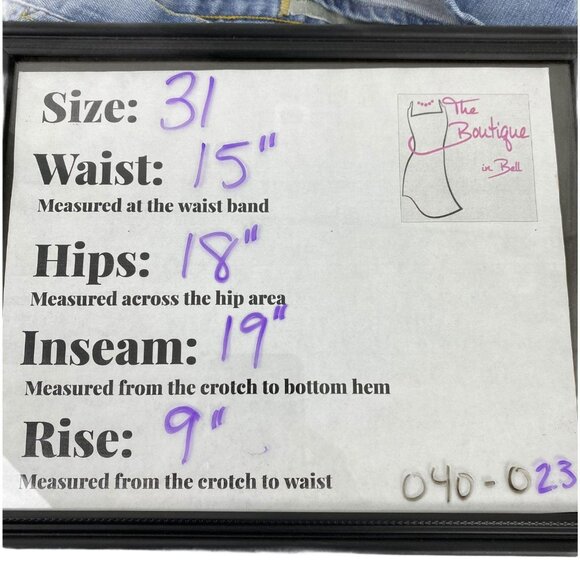 Size: 31
The
Boutique
in Bell
Waist: 15"
Measured at the waist band
Hips: 18"
Measured across the hip area
Inseam: 19"
Measured from the crotch to bottom hem
Rise: 9"
Measured from the crotch to waist
040-023